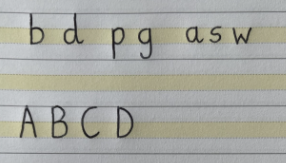 b d p g a s w
A B C D